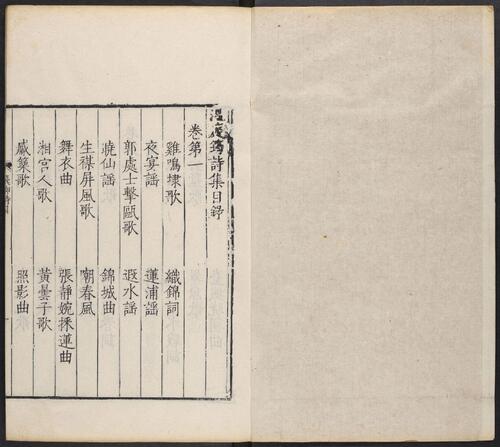 溫庭筠詩集目錄
卷第一
雞鳴埭歌 織錦詞
夜宴謠 蓮浦謠
郭處士擊甌歌 遐水謠
曉仙謠 錦城曲
生禖屏風歌 嘲春風
舞衣曲 張靜婉採蓮曲
湘宮人歌 黃曇子歌
觱篥歌 照影曲